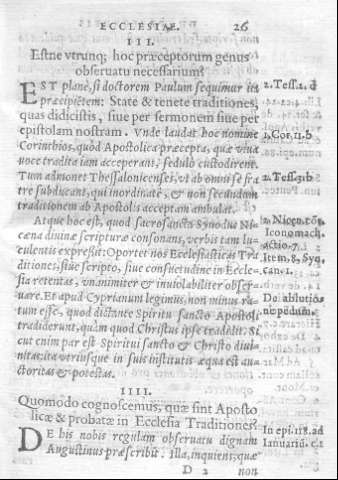 ECCLESIAE. 26
III.
Estne vtrunq; hoc præceptorum genus
obseruatu necessarium?
EST planè, si doctorem Paulum sequimur ita
præcipiētem: State & tenete traditiones,
quas didicistis, siue per sermonem siue per
epistolam nostram. Vnde laudat hoc nomine
Corinthios, quòd Apostolica præcepta, quæ viua
voce tradita iam acceperant, sedulò custodirent.
Tum admonet Thessalonicenses, vt ab omni se fra-
tre subducant, qui inordinatè, & non secundum
traditionem ab Apostolis acceptam ambulat.
Atque hoc est, quod sacrosancta Synodus Ni-
cæna diuinæ scripturæ consonans, verbis tam lu-
culentis expressit: Oportet nos Ecclesiasticas Tra-
ditiones, siue scripto, siue consuetudine in Eccle-
sia retentas, vnanimiter & inuiolabiliter obser-
uare. Et apud Cyprianum legimus, non minus ra-
tum esse, quod dictante Spiritu sancto Apostoli
tradiderunt, quàm quod Christus ipse tradidit. Si
cut enim par est Spiritui sancto & Christo diui-
nitas, ita vtriusque in suis institutis æqua est au-
ctoritas & potestas.
IIII.
Quomodo cognoscemus, quæ sint Aposto
licæ & probatæ in Ecclesia Traditiones?
DE his nobis regulam obseruatu dignam
Augustinus præscribit. Illa, inquiens, quæ
D 2 non
2. Tess. 2. d
1. Cor. 11. b
2. Tess. 3. b
2. Nicen. cōs.
Iconomach.
actio. 7.
Item. 8. Syn.
can. 1.
De ablutiōe
pedum.
In epi. 118. ad
Ianuariū. c. 1